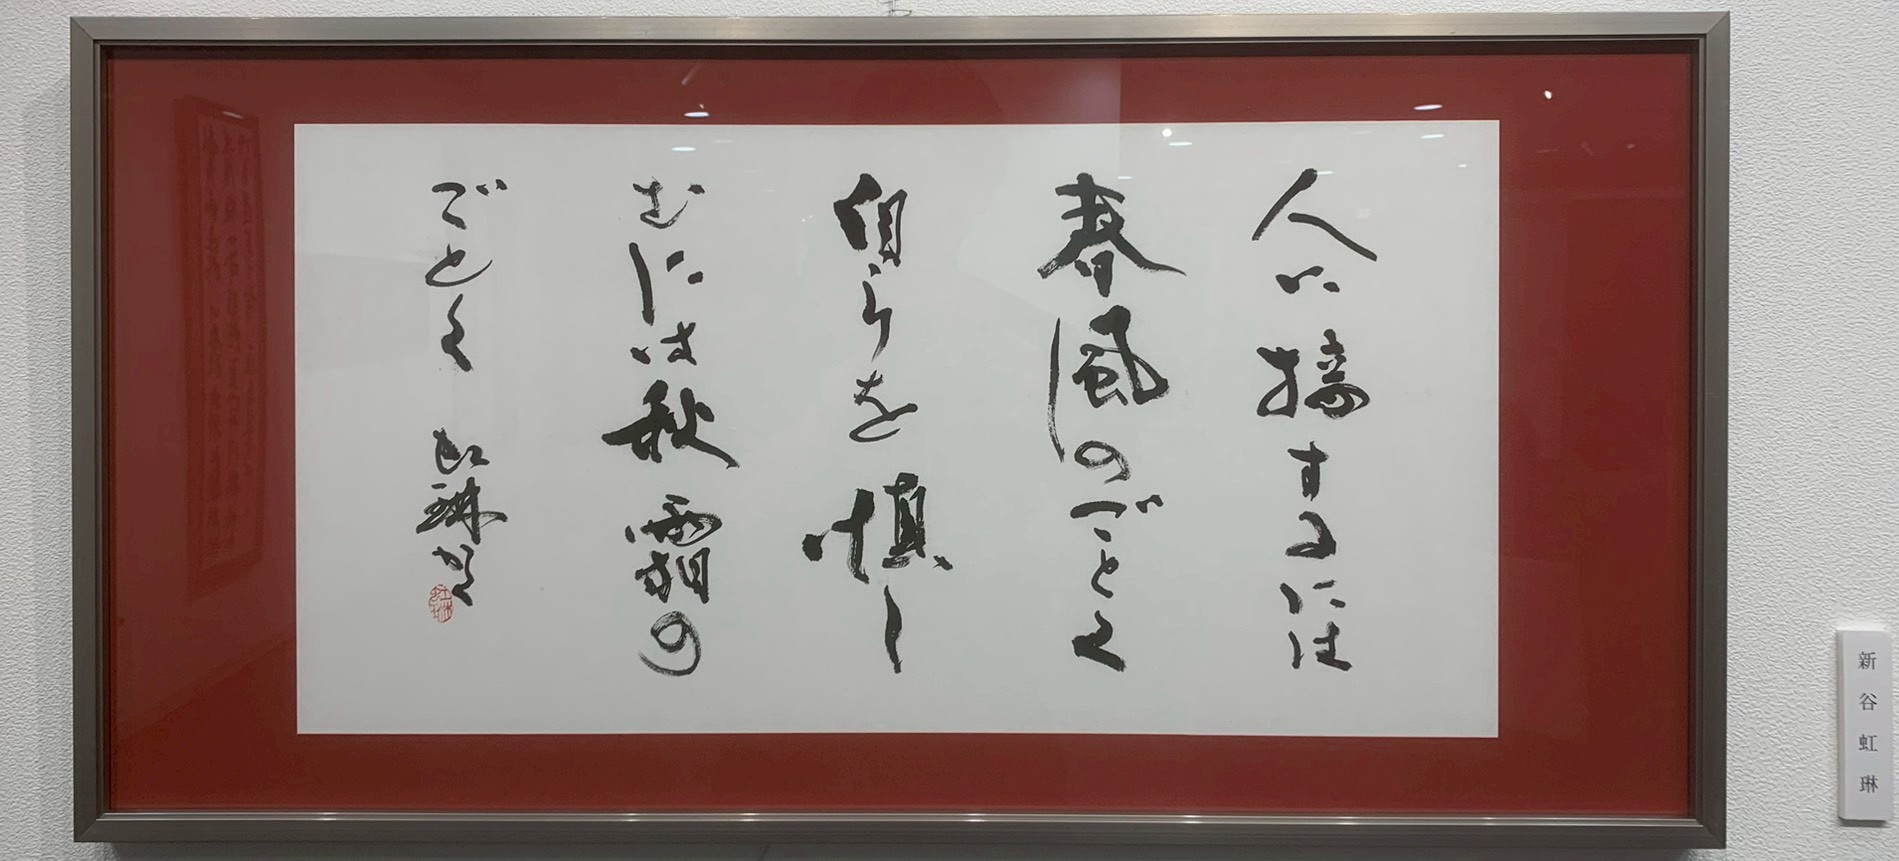 人に接するには
春風のごとく
自らを慎し
むには秋霜の
ごとく 虹琳書
新谷虹琳